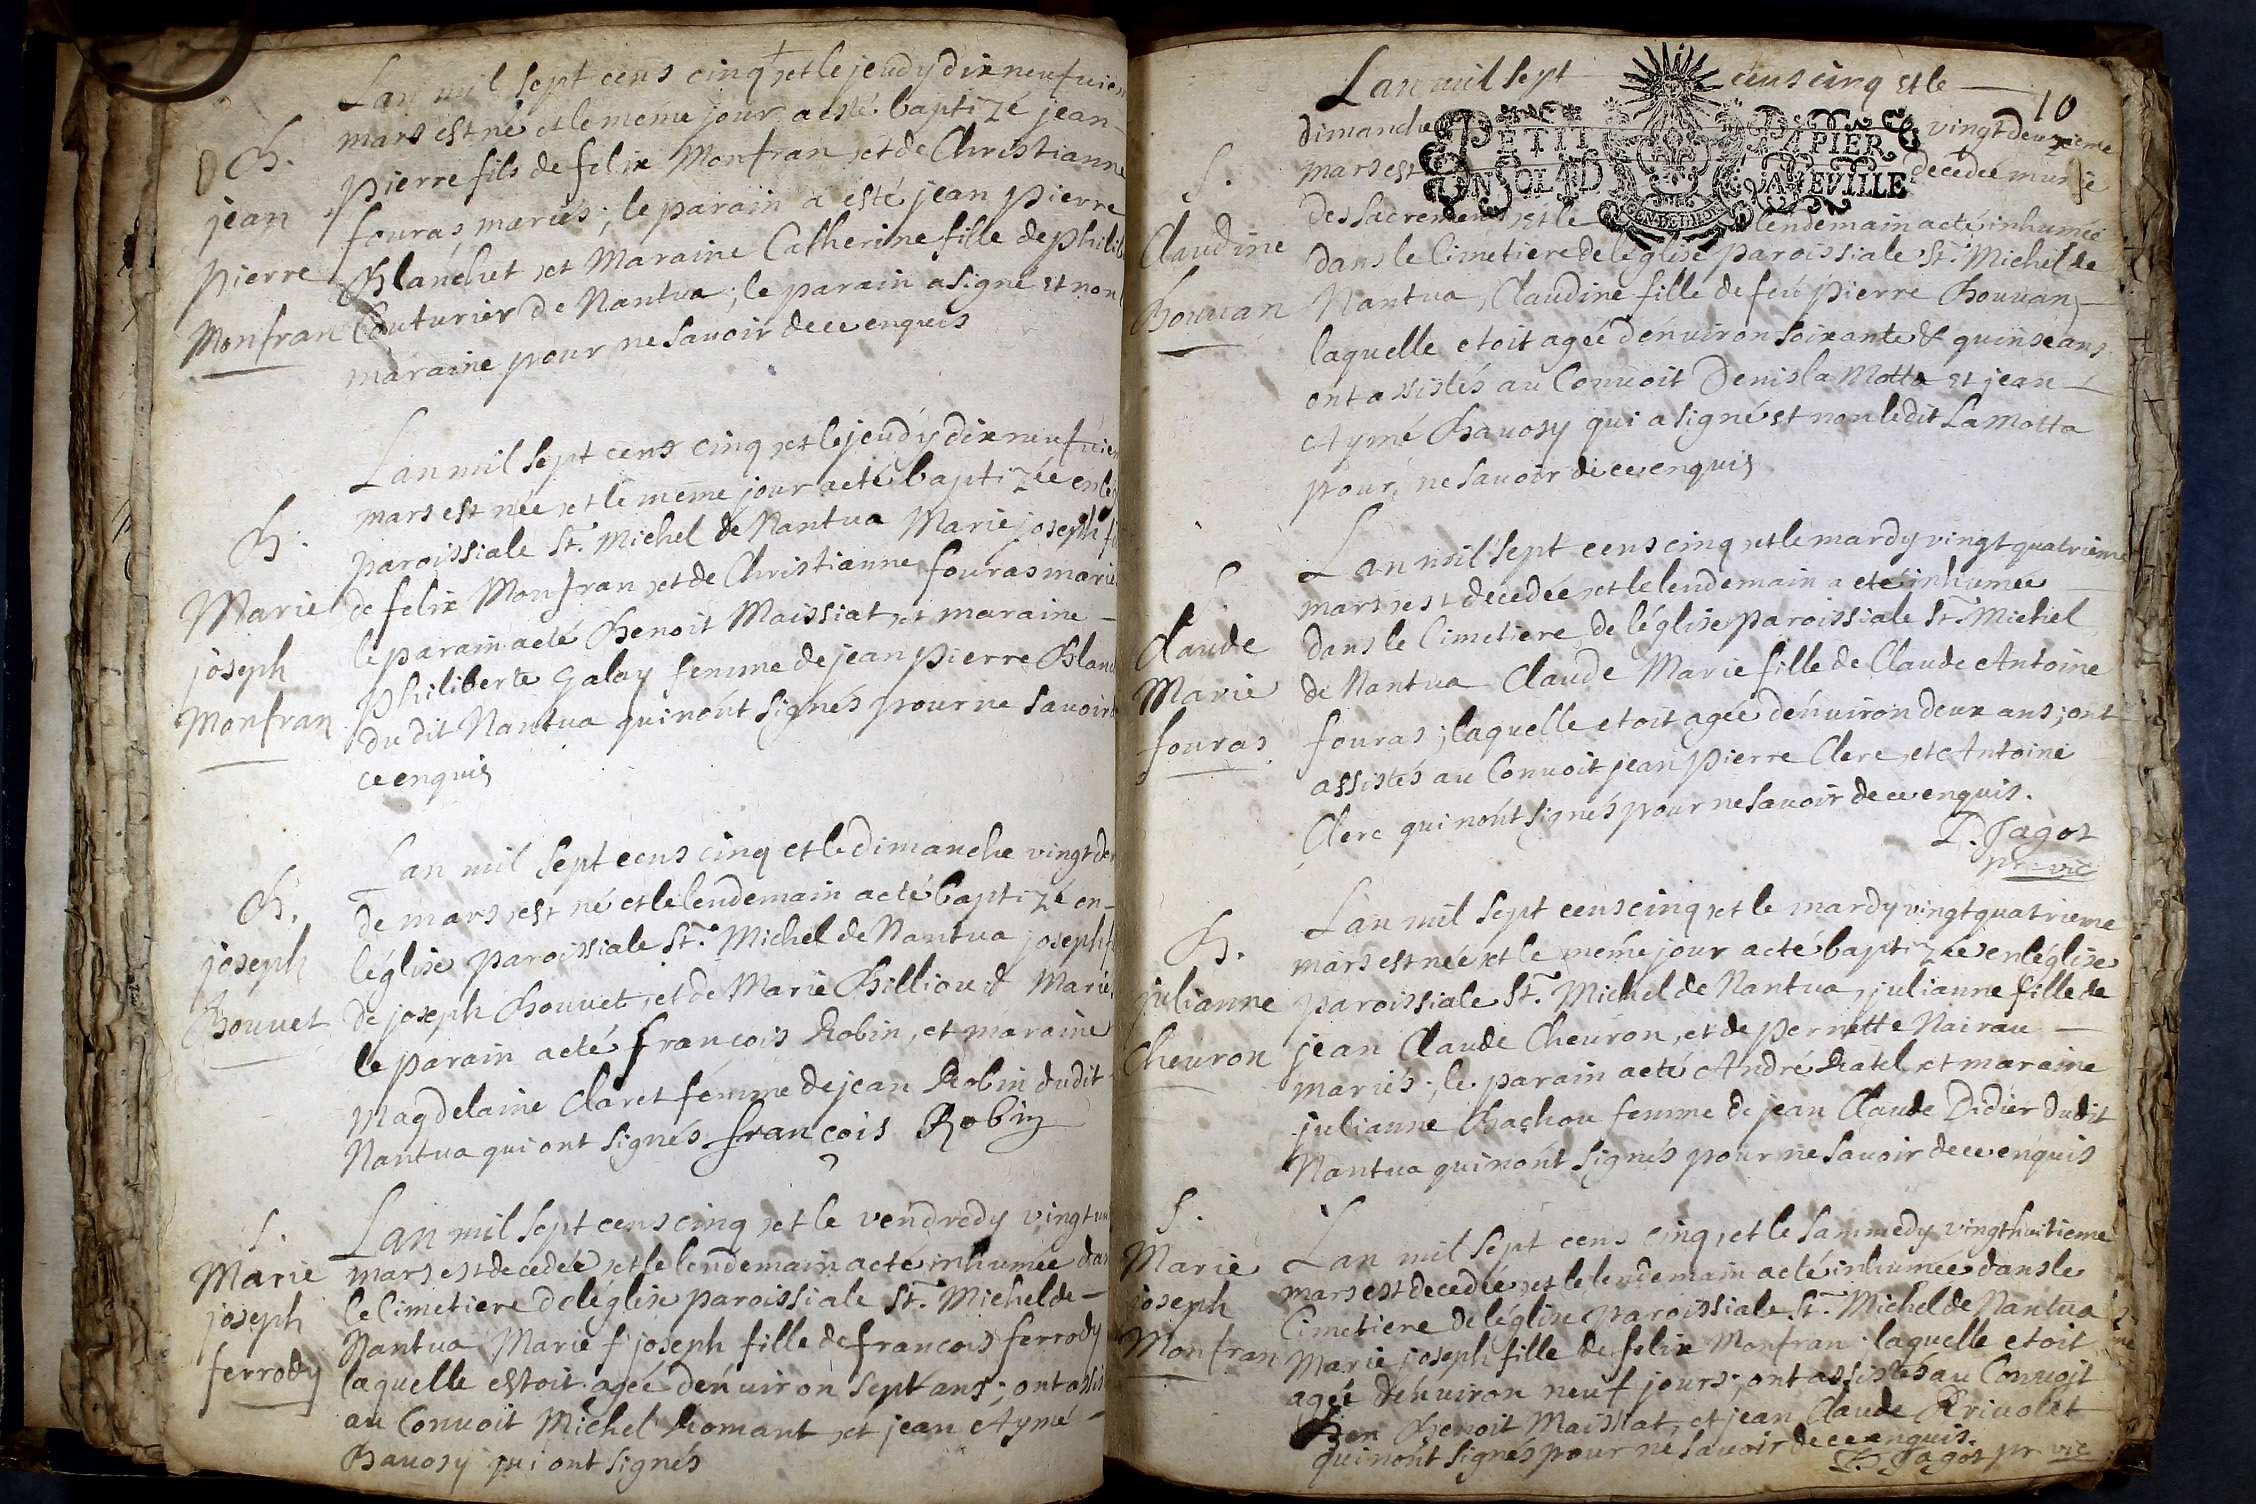 Lan mil sept cens cinq et le jeudy dix neufuie
mars est né et le même jour a esté baptizé jean
B.
jean
pierre
Monfran
pierre fils de felix Monfran et de Christianne
fouras mariés; le parain a esté jean pierre
Blanchet et Maraine Catherine fille de philib
Couturier de Nantua; le parain a signé et non
maraine pour ne sauoir de ce enquis
Lan mil sept cens cinq et le jeudy dix neufuie
mars est née et le même jour a eté baptizée en le
B.
Marie
joseph
Monfran
paroissiale St. Michel de Nantua Marie joseph fi
de felix Monfran et de Christianne fouras marié
le parain a eté Benoit Maissiat et maraine
philiberte Galay femme de jean pierre Blan
du dit Nantua qui n'ont signés pour ne sauoir
ce enquis
Lan mil sept cens cinq et le dimanche vingt de
B.
joseph
Bouuet
de mars est né et le lendemain a eté baptizé en
léglise paroissiale St. Michel de Nantua joseph f
de joseph Bouuet, et de Marie Billioud Marié
le parain a eté francois Robin, et maraine
Magdelaine Claret femme de jean Robin dudit
Nantua qui ont signés françois Robin
Lan mil sept cens cinq et le vendredy vingt
S.
Marie
joseph
ferrody
mars est decedée et le lendemain a eté inhumée dan
le Cimetiere de léglise paroissiale St. Michel de
Nantua Marie f joseph fille de francois ferrody
laquelle estoit agée dénuiron sept ans; ont assis
au Conuoit Michel Romant et jean Aymé
Bauosy qui ont signés
Lan mil sept cens cinq et le
10
dimanche vingt deuxieme
PETIT PAPIER
mars est decedée munie
UN SOL LA FEUILLE
GEN DE DIJON
S.
Claudine
Bouuan
des sacremens et le lendemain a eté inhumée
dans le Cimetiere de léglise paroissiale St. Michel de
Nantua, Claudine fille de feu pierre Bouuan
laquelle etoit agée dénuiron soixante & quinse ans
ont assistés au Conuoit Denis la Motta et jean
Aymé Bauosy qui a signé et non ledit La Motta
pour ne sauoir de ce enquis
Lan mil sept cens cinq et le mardy vingt quatrieme
S.
Claude
Marie
fouras
mars est decedée et le lendemain a eté inhumée
dans le Cimetiere de léglise paroissiale St. Michel
de Nantua Claude Marie fille de Claude Antoine
fouras; laquelle etoit agée dénuiron deux ans; ont
assistés au Conuoit jean pierre Clerc, et Antoine
Clerc qui n'ont signés pour ne sauoir de ce enquis.
Jagot
pr. vic
Lan mil sept cens cinq et le mardy vingt quatrieme
B.
julianne
Cheuron
mars est née et le même jour a eté baptizée en léglise
paroissiale St. Michel de Nantua, julianne fille de
jean Claude Cheuron, et de pernette Nairau
mariés; le parain a eté André Ratel et maraine
julianne Bachou femme de jean Claude Didier dudit
Nantua qui n'ont signés pour ne sauoir de ce enquis
S.
Marie
joseph
Monfran
Lan mil sept cens cinq, et le sammedy vingt huitieme
mars est decedée et le lendemain a eté inhumée dans le
Cimetiere de léglise paroissiale St. Michel de Nantua
Marie joseph fille de felix Monfran laquelle etoit
agée dénuiron neuf jours; ont assistés au Conuoit
Benoit Maissiat, et jean Claude Riuolet
qui n'ont signés pour ne sauoir de ce enquis.
Jagot pr. vic